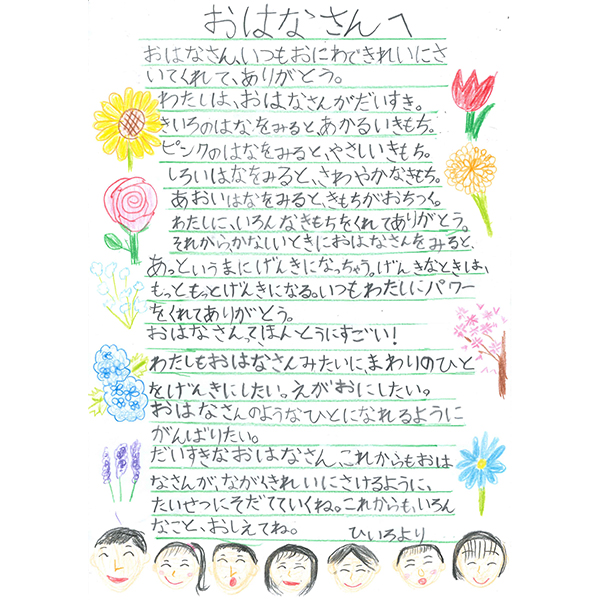 おはなさんへ
おはなさん、いつもおにわできれいにさ
いてくれて、ありがとう。
わたしは、おはなさんがだいすき。
きいろのはなをみると、あかるいきもち。
ピンクのはなをみると、やさしいきもち。
しろいはなをみると、さわやかなきもち。
あおいはなをみると、きもちがおちつく。
わたしに、いろんなきもちをくれてありがとう。
それからかなしいときにおはなさんをみると、
あっというまにげんきになっちゃう。げんきなときは、
もっともっとげんきになる。いつもわたしにパワー
をくれてありがとう。
おはなさんってほんとうにすごい！
わたしもおはなさんみたいに、まわりのひと
をげんきにしたい。えがおにしたい。
おはなさんのようなひとになれるように
がんばりたい。
だいすきなおはなさん、これからもおは
なさんが、ながくきれいにさけるように、
たいせつにそだてていくね。これからも、いろん
なこと、おしえてね。
ひいろより